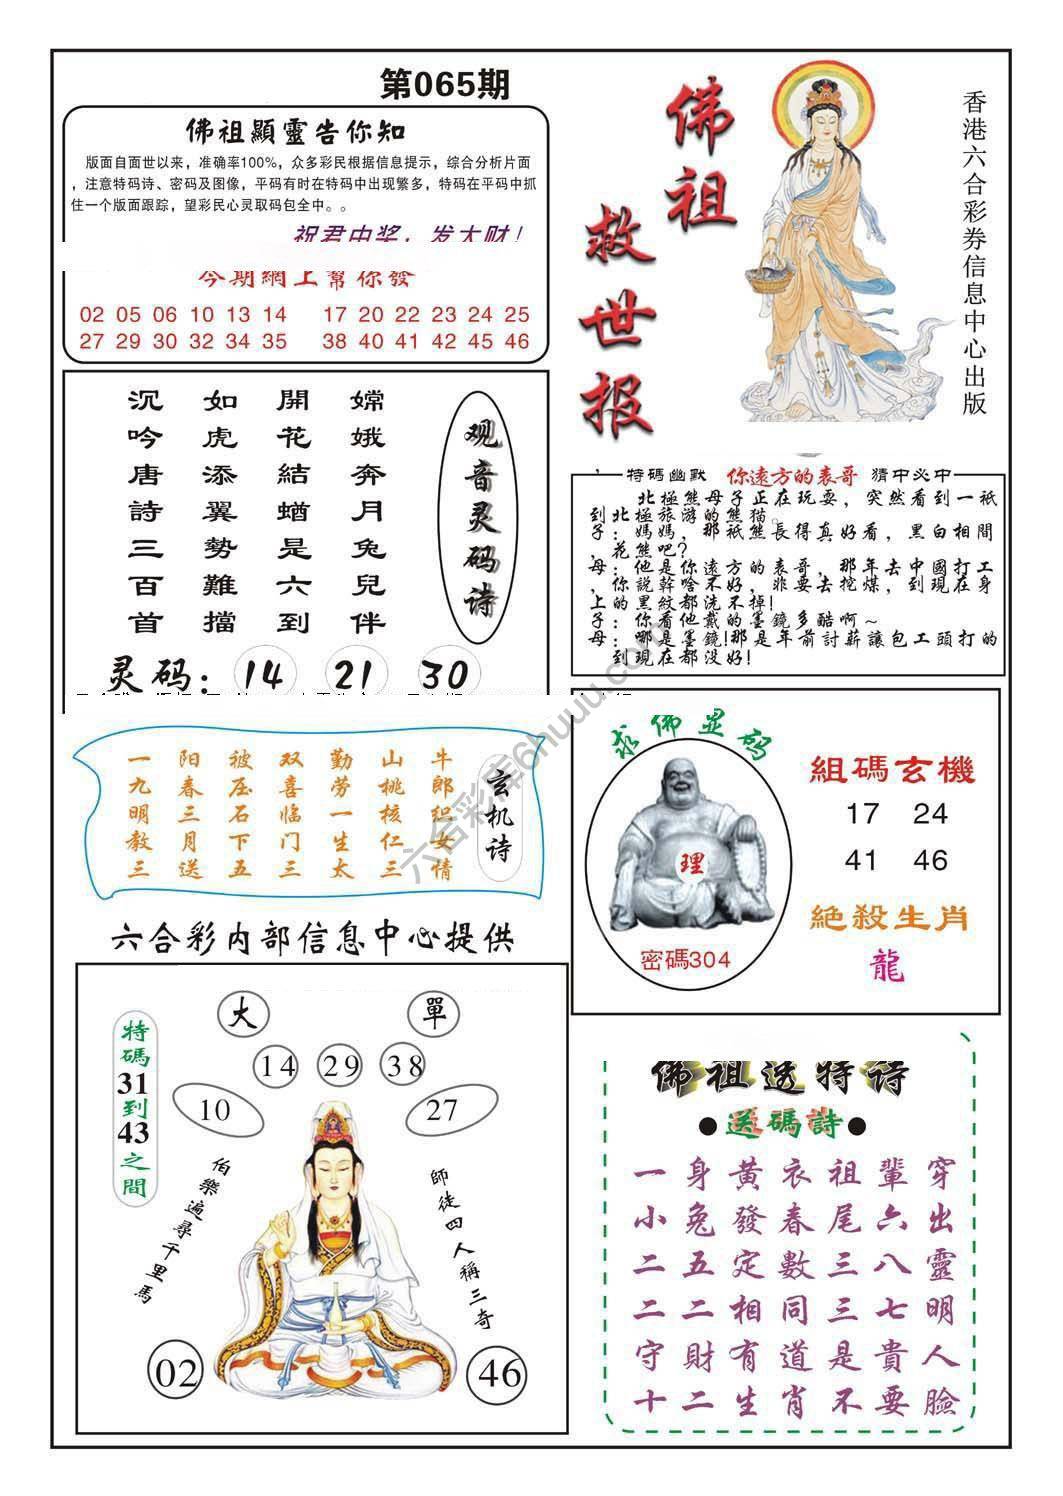 第065期
佛祖顯靈告你知
版面自面世以来，准确率100%，众多彩民根据信息提示，综合分析片面
，注意特码诗、密码及图像，平码有时在特码中出现繁多，特码在平码中抓
住一个版面跟踪，望彩民心灵取码包全中。。
祝君中奖，发大财！
今期網上幫你發
02 05 06 10 13 14 17 20 22 23 24 25
27 29 30 32 34 35 38 40 41 42 45 46
佛祖
救世报
香港六合彩券信息中心出版
观音灵码诗
嫦娥奔月兔兒伴
開花結蝤是六到
如虎添翼勢難擋
沉吟唐詩三百首
灵码：14 21 30
特碼幽默 你遠方的表哥 猜中必中
北極熊母子正在玩耍，突然看到一祇
到北極旅游的熊猫。
子：媽媽，那祇熊長得真好看，黑白相間
，花熊吧？
母：他是你遠方的表哥，那年去中國打工
，你説幹啥不好，非要去挖煤，到現在身
上的黑紋都洗不掉！
子：你看他戴的墨鏡多酷啊～
母：哪是墨鏡！那是年前討薪讓包工頭打的
到現在都没好！
玄机诗
牛郎织女情
山桃核仁三
勤劳一生太
双喜临门三
被压石下五
阳春三月送
一九明教三
求佛显码
理
密碼304
組碼玄機
17 24
41 46
絕殺生肖
龍
六合彩内部信息中心提供
大
單
14 29 38
10 27
特碼31到43之間
伯樂遍尋千里馬
師徒四人稱三奇
02
46
佛祖透特诗
●送碼詩●
一身黃衣祖輩穿
小兔發春尾六出
二五定數三八靈
二二相同三七明
守財有道是貴人
十二生肖不要臉
六合彩库6huuu.com